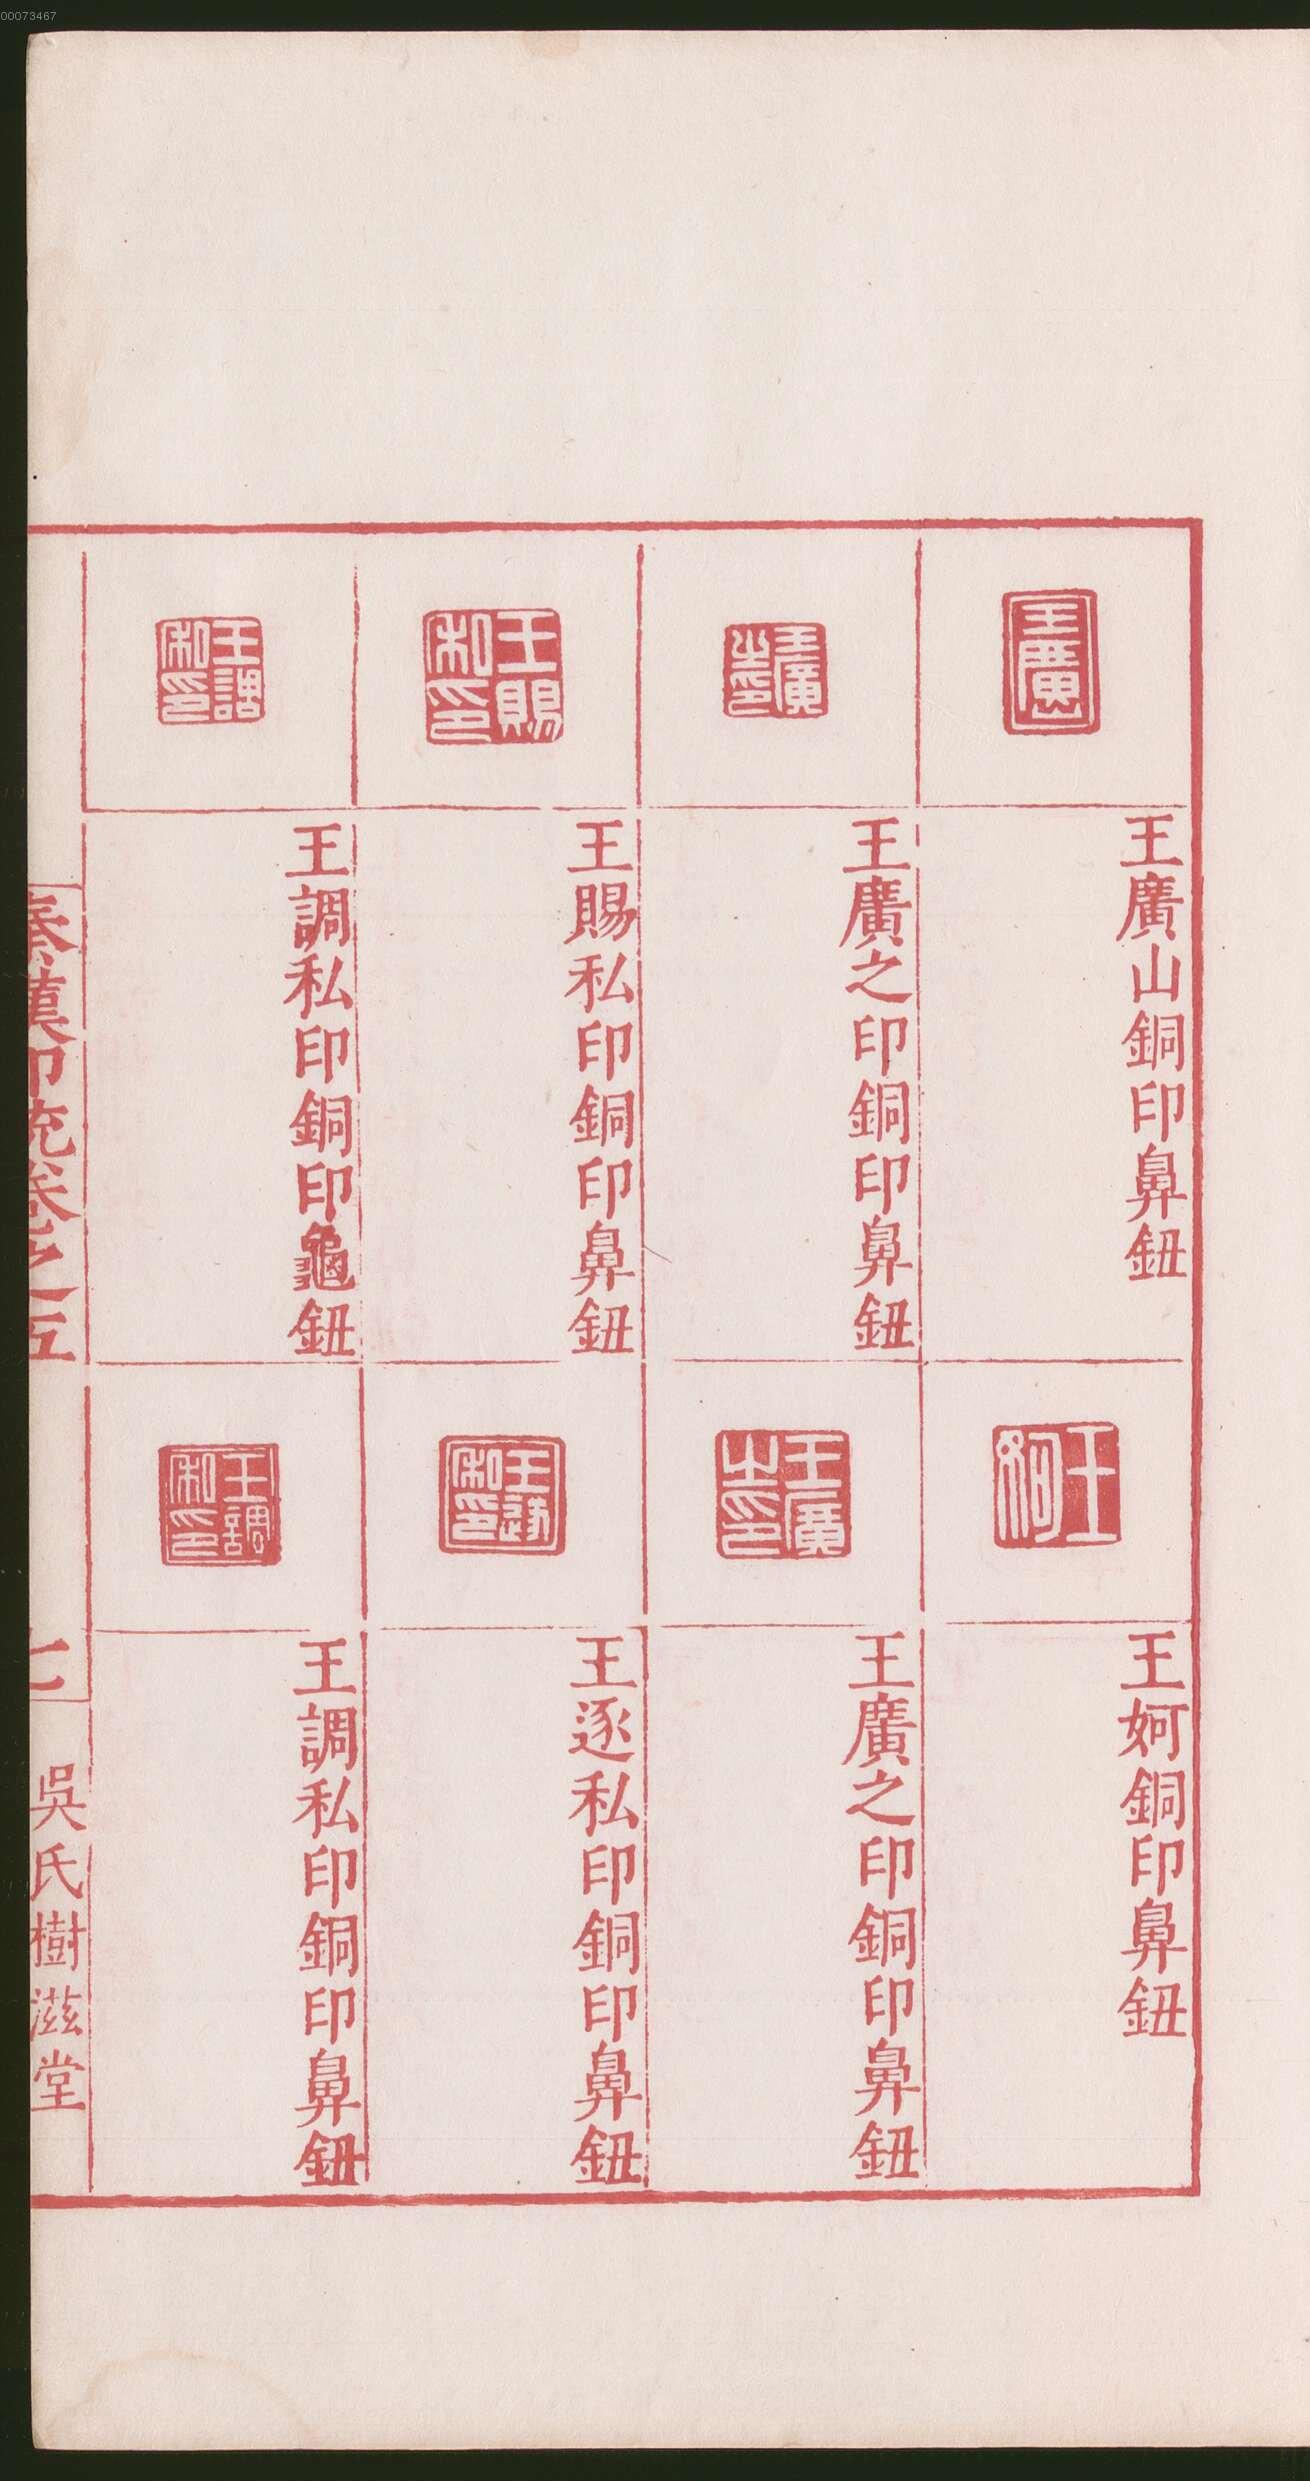 00073467
王廣山
王廣山銅印鼻鈕
王妸
王妸銅印鼻鈕
王廣之印
王廣之印銅印鼻鈕
王廣之印
王廣之印銅印鼻鈕
王賜私印
王賜私印銅印鼻鈕
王逐私印
王逐私印銅印鼻鈕
王調私印
王調私印銅印龜鈕
王調私印
王調私印銅印鼻鈕
秦漢印統卷之五
七
吳氏樹滋堂